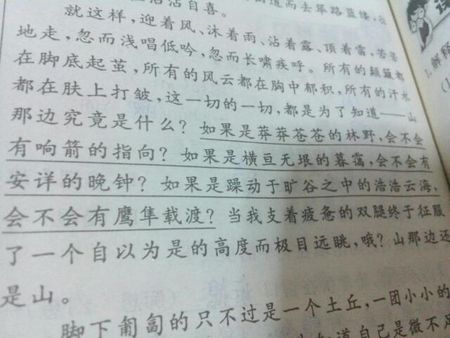 沾沾自喜。
就这样，迎着风、沐着雨、沾着露、顶着雷，苦苦
地走，忽而浅唱低吟，忽而长啸疾呼。所有的颠簸都
在脚底起茧，所有的风云都在胸中郁积，所有的汗水
都在肤上打皱，这一切的一切，都是为了知道——山
那边究竟是什么？如果是莽莽苍苍的林野，会不会
有响箭的指向？如果是横亘无垠的暮霭，会不会有
安详的晚钟？如果是躁动于旷谷之中的浩浩云海，
会不会有鹰隼载渡？当我支着疲惫的双腿终于征服
了一个自以为是的高度而极目远眺，哦？山那边还
是山。
脚下匍匐的只不过是一个土丘，一团小小的
知道自己是微不足
1.解释